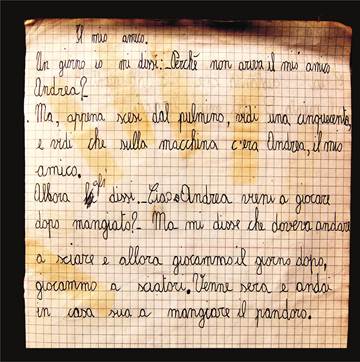 Il mio amico.
Un giorno io mi dissi:_Perchè non arriva il mio amico
Andrea?_
Ma, appena scesi dal pulmino, vidi una cinquecento,
e vidi che sulla macchina c'era Andrea, il mio
amico.
Allora gli dissi._Ciao Andrea vieni a giocare
dopo mangiato?_ Ma mi disse che doveva andare
a sciare e allora giocammo il giorno dopo,
giocammo a sciatori. Venne sera e andai
in casa sua a mangiare il pandoro.